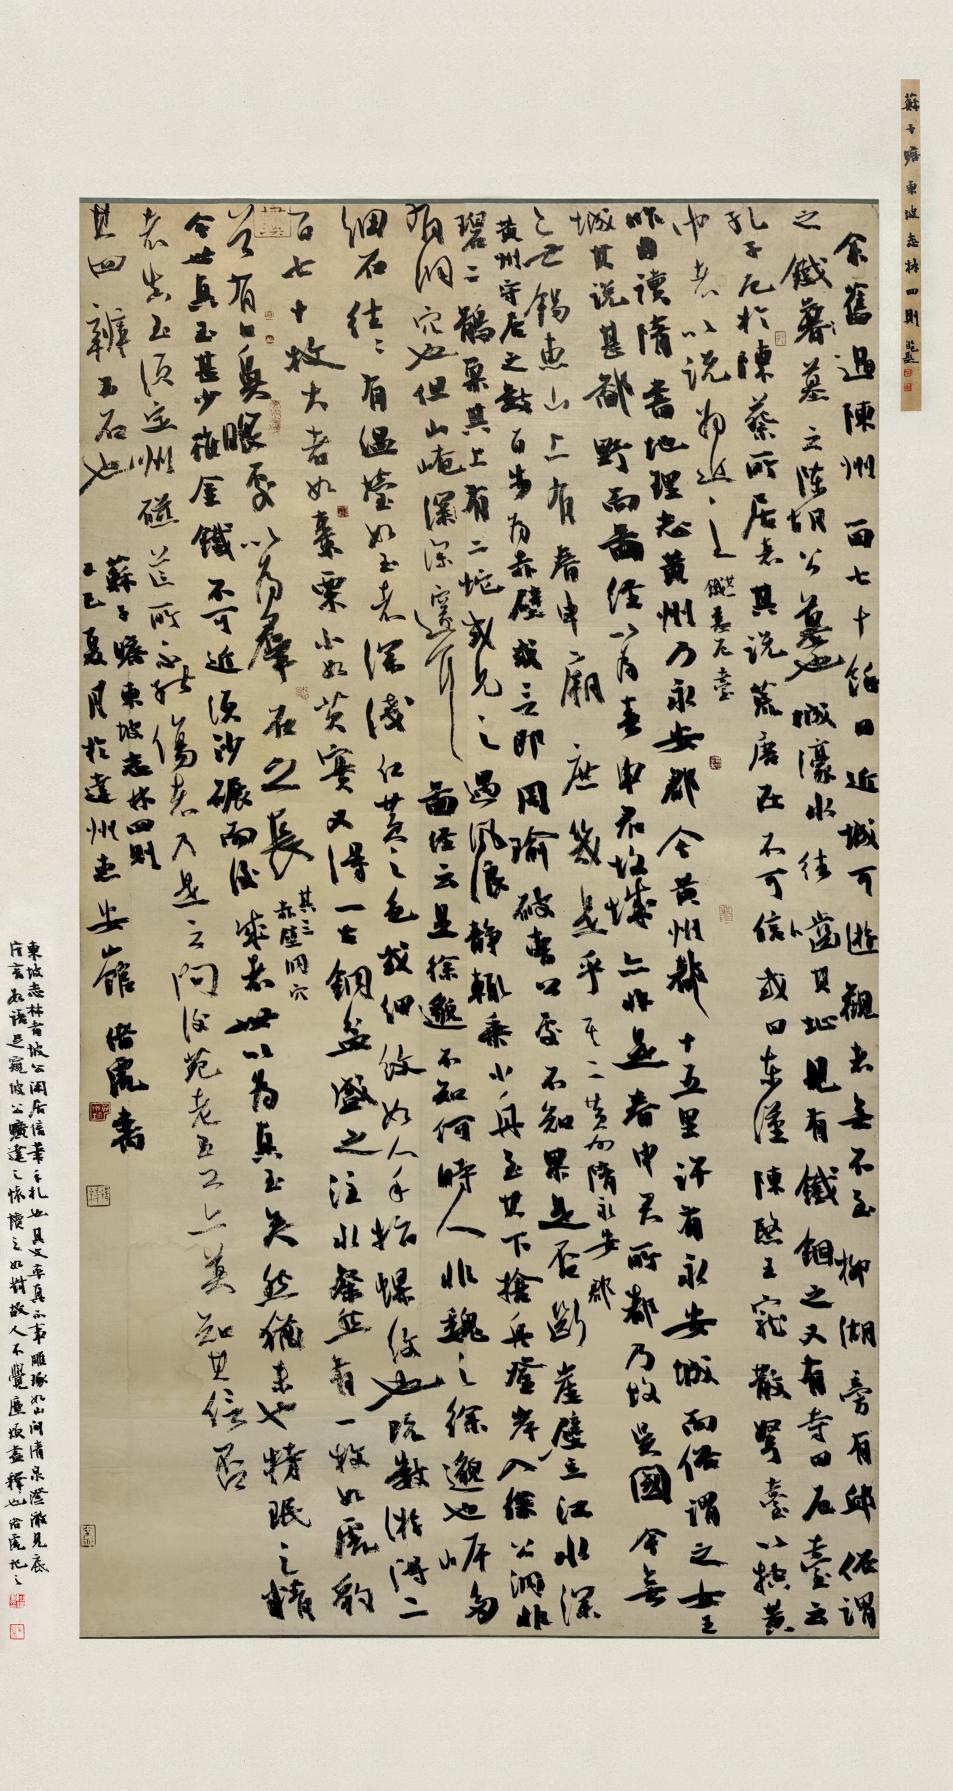 蘇子瞻東坡志林四則
余舊過陳州留七十餘日近城可遊觀者無不至柳湖旁有邱俗謂
之鐵墓云陳胡公墓也城濠水往齧其址見有鐵錮之又有寺曰石臺云
孔子厄於陳蔡所居者其說荒唐在不可信或曰東漢陳愍王寵散弩臺以控黃
巾者以說為近之
其一鐵墓厄臺
昨日讀隋書地理志黃州乃永安郡今黃州都十五里許有永安城而俗謂之女王
城其說甚鄙野而圖經以為春申君故城亦非是春申君所都乃故吳國今無
錫惠山上有春申廟庶幾是乎其二黃州隋永安郡
黃州守居之數百步為赤壁或言即周瑜破曹公處不知果是否斷崖壁立江水深
碧二鶻巢其上有二蛇或見之遇風浪靜輒乘小舟至其下捨舟登岸入徐公洞非
有洞穴也但山崦深邃耳圖經云是徐邈不知何時人非魏之徐邈也岸多
細石往往有溫瑩如玉者深淺紅黃之色或細紋如人手指螺紋也既數游得二
百七十枚大者如棗栗小如芡實又得一古銅盆盛之注水粲然有一枚如虎豹
首有口鼻眼處以為群石之長
其三赤壁洞穴
今世真玉甚少雖金鐵不可近須沙碾而後成者世以為真玉矣然猶未也特珉之精
者真玉須定州磁芒所不能傷者乃是云問後苑老玉工亦莫知其信否
其四辨玉石也
蘇子瞻東坡志林四則
乙巳夏月於達州
書
東坡志林者坡公閑居信筆手札也其文率真不事雕琢如山間清泉澄澈見底
片言如語足窺坡公曠達之懷讀之如對故人不覺塵煩盡釋也